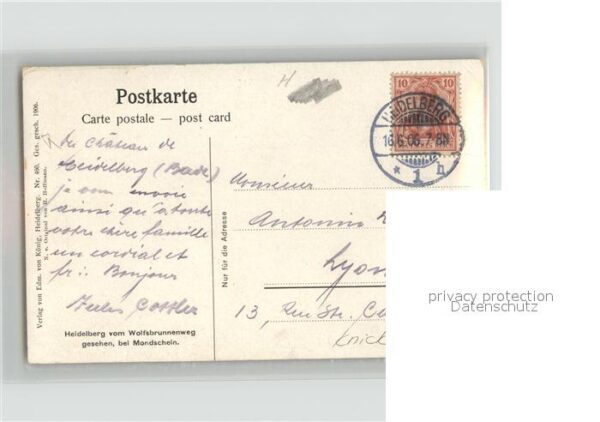 Postkarte
Carte postale — post card
10 10
HEIDELBERG
16.6.06.7-8N.
* 1 h
Du Château de
Heidelberg (Bade)
je vous envoie
ainsi qu'à toute
votre chère famille
un cordial et
fr: Bonjour
Jules
Heidelberg vom Wolfsbrunnenweg
gesehen, bei Mondschein.
Verlag von Edm. von König, Heidelberg. Nr. 490. Ges. gesch. 1906.
N. u. Original von H. Hoffmann.
Nur für die Adresse
Monsieur
Antonin
Lyon
13, Rue Ste. C
Knick
privacy protection
Datenschutz